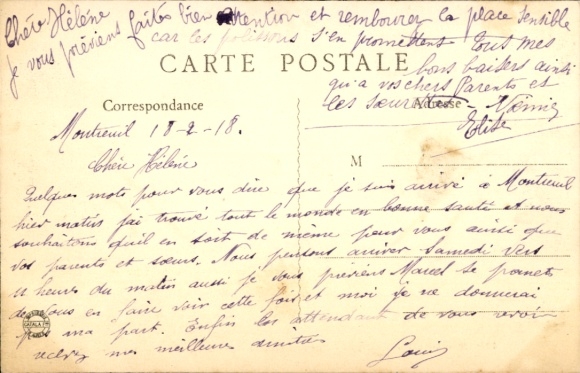 Chére Hélène
Je vous préviens faites bien attention et rembourrez la place sensible
car les polissons s'en promettent tous mes
bons baisers ainsi
qu'a vos chers Parents et
les sœurs
Elise
CARTE POSTALE
Correspondance
Adresse
M
Montreuil 18-2-18.
Chére Hélène
Quelques mots pour vous dire que je suis arrivé à Montreuil
hier matin j'ai trouvé tout le monde en bonne santé et nous
souhaitons qu'il en soit de même pour vous ainsi que
vos parents et sœurs. Nous pensons arriver Samedi vers
11 heures du matin aussi je vous previens Marcel se promet
de vous en faire voir cette fois et moi je ne donnerai
pas ma part. Enfin en attendant de vous revoir
recevez mes meilleures amitiés
Louis